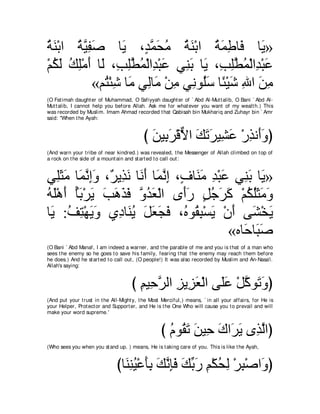 «يَا فَاطِمَةُ ابْنَةُ مُحَمَّدٍ، يَا صَفِيَّةُ ابْنَةُ
عَبْدِالْمُطَّلِبِ، يَا بَنِي عَبْدِالْمُطَّلِبِ، لَا أَمْلِكُ لَكُمْ
مِنَ اللهِ شَيْئًا سَلُونِي مِنْ مَالِي مَا شِئْتُمْ»
(O Fatimah daughter of Muhammad, O Safiyyah daughter of `Abd Al-Muttalib, O Bani `Abd Al-
Muttalib, I cannot help you before Allah. Ask me for whatever you want of my wealth.) This
was recorded by Muslim. Imam Ahmad recorded that Qabisah bin Mukhariq and Zuhayr bin `Amr
said: "When the Ayah:
(وَأَنذِرْ عَشِيرَتَكَ الْأَقْرَبِينَ )
(And warn your tribe of near kindred.) was revealed, the Messenger of Allah climbed on top of
a rock on the side of a mountain and started to call out:
«يَا بَنِي عَبْدِ مَنَافٍ، إِنَّمَا أَنَا نَذِيرٌ، وَإِنَّمَا مَثَلِي
وَمَثَلُكُمْ كَرَجُلٍ رَأَى الْعَدُوَّ فَذَهَبَ يَرْبَأُ أَهْلَهُ
يَخْشَى أَنْ يَسْبِقُوهُ، فَجَعَلَ يُنَادِي وَيَهْتِفُ: يَا
صَبَاحَاه»
(O Bani `Abd Manaf, I am indeed a warner, and the parable of me and you is that of a man who
sees the enemy so he goes to save his family, fearing that the enemy may reach them before
he does.) And he started to call out, (O people!) It was also recorded by Muslim and An-Nasa'i.
Allah's saying:
(وَتَوكَّلْ عَلَى الْعَزِيزِ الرَّحِيمِ )
(And put your trust in the All-Mighty, the Most Merciful,) means, `in all your affairs, for He is
your Helper, Protector and Supporter, and He is the One Who will cause you to prevail and will
make your word supreme.'
(الَّذِى يَرَاكَ حِينَ تَقُومُ )
(Who sees you when you stand up.) means, He is taking care of you. This is like the Ayah,
(وَاصْبِرْ لِحُكْمِ رَبِّكَ فَإِنَّكَ بِأَعْيُنِنَا)